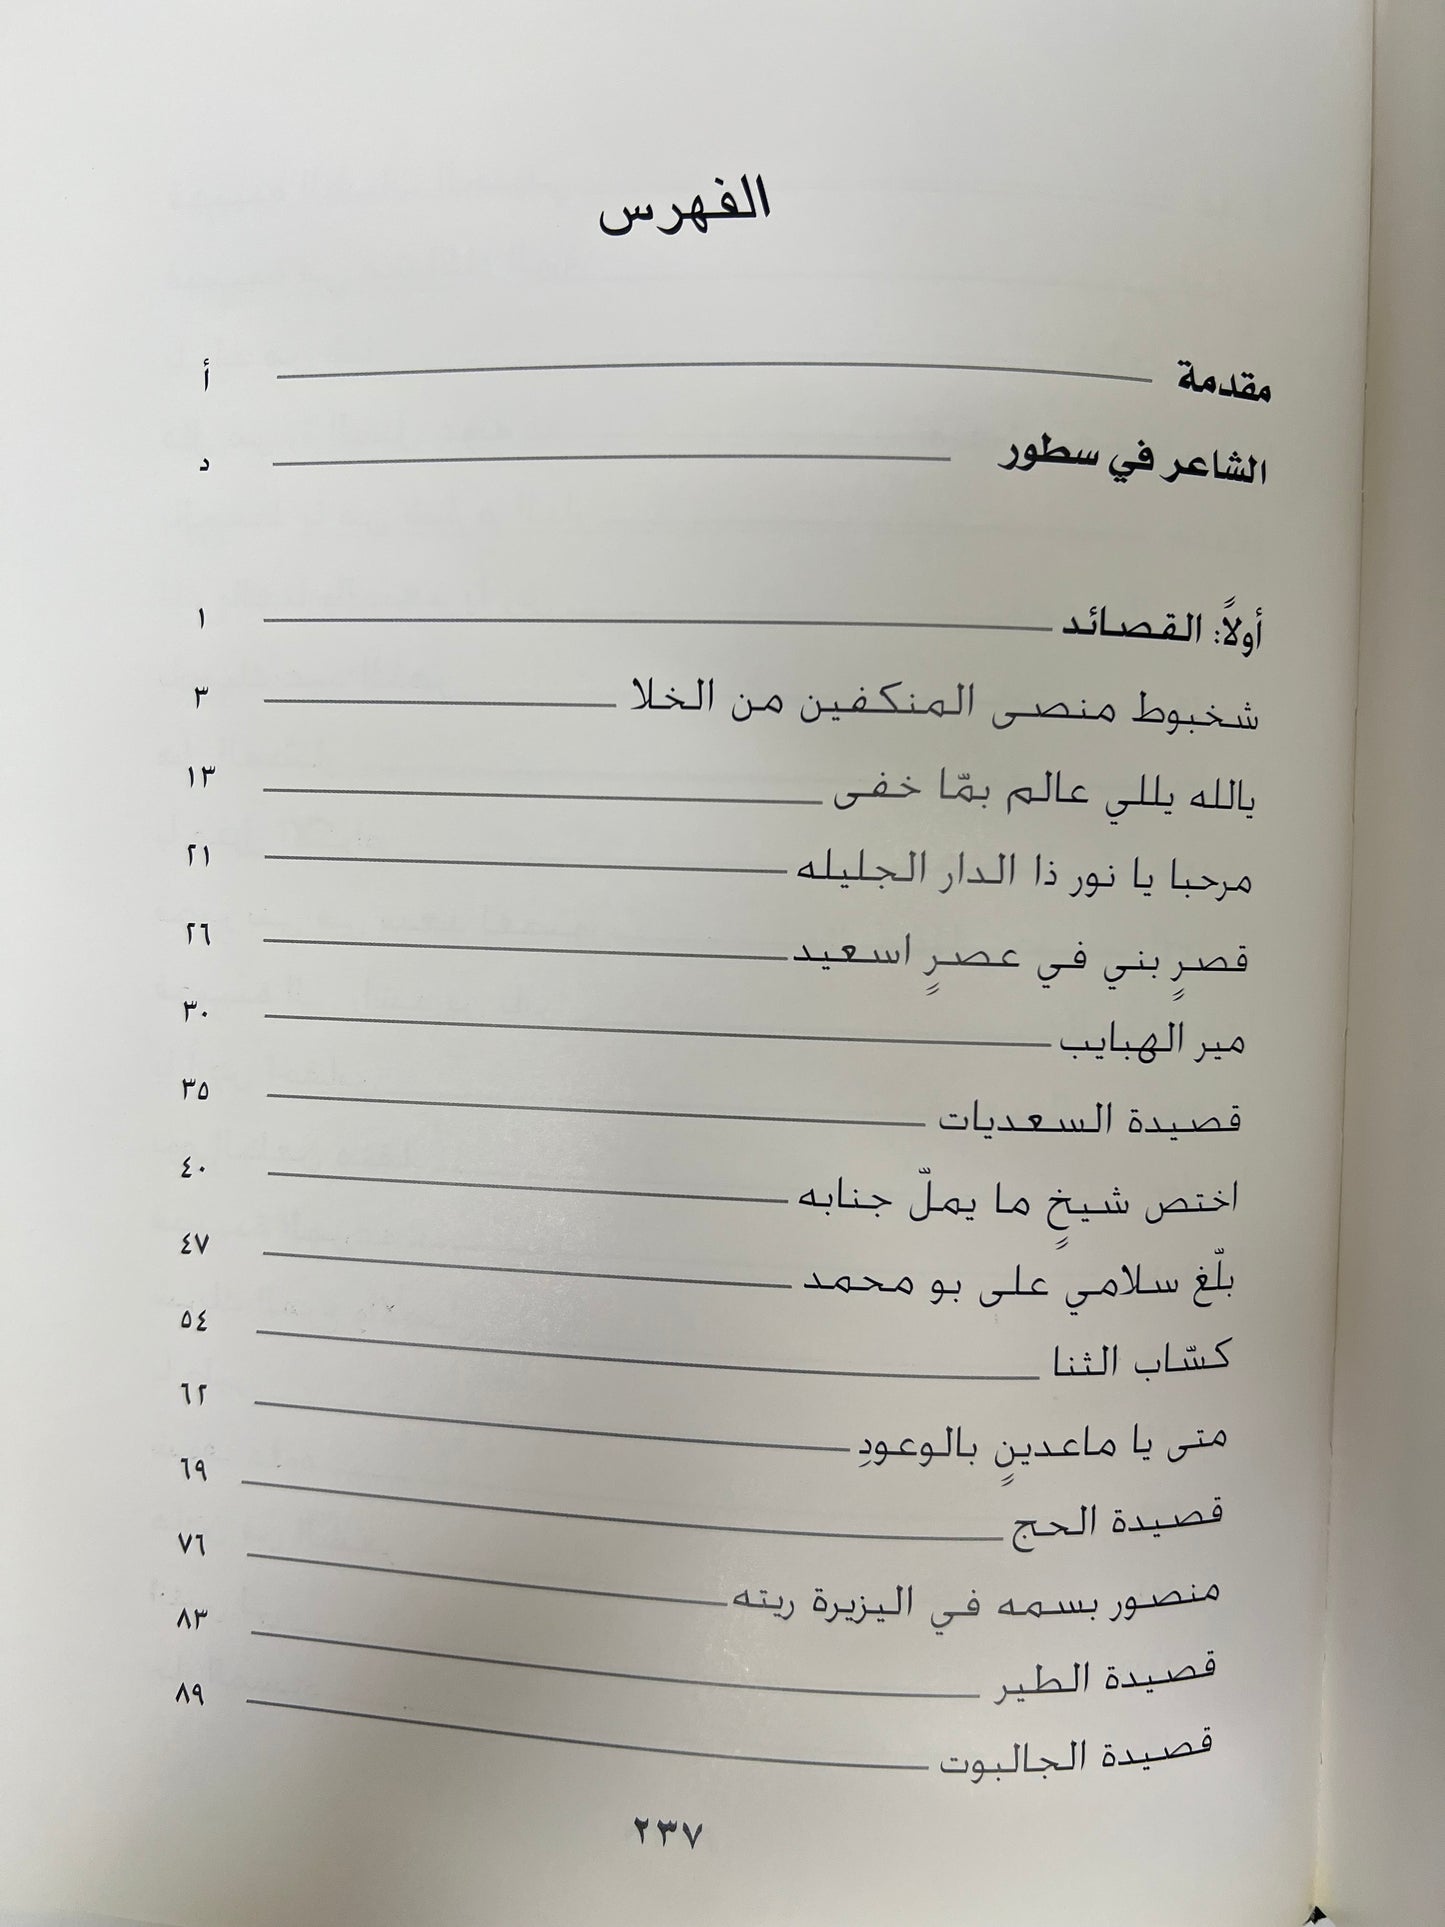 الفهرس
مقدمة أ
الشاعر في سطور د
أولاً: القصائد ١
شخبوط منصى المنكفين من الخلا ٣
يالله يللي عالم بمّا خفى ١٣
مرحبا يا نور ذا الدار الجليله ٢١
قصرٍ بني في عصرٍ اسعيد ٢٦
مير الهبايب ٣٠
قصيدة السعديات ٣٥
اختص شيخٍ ما يملّ جنابه ٤٠
بلّغ سلامي على بو محمد ٤٧
كسّاب الثنا ٥٤
متى يا ماعدينٍ بالوعودِ ٦٢
قصيدة الحج ٦٩
منصور بسمه في اليزيرة ريته ٧٦
قصيدة الطير ٨٣
قصيدة الجالبوت ٨٩
٢٣٧